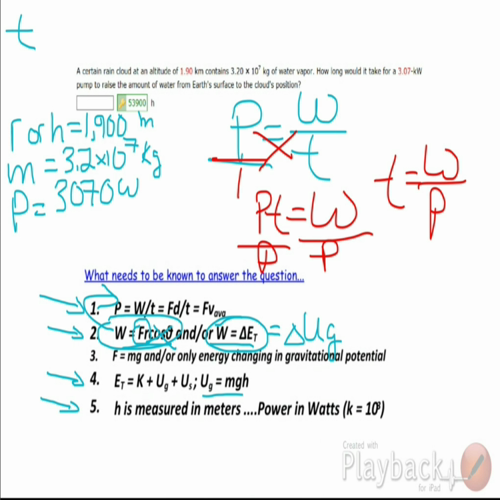 t
A certain rain cloud at an altitude of 1.90 km contains 3.20 × 10⁷ kg of water vapor. How long would it take for a 3.07-kW
pump to raise the amount of water from Earth's surface to the cloud's position?
53900 h
r or h = 1,900 m
m = 3.2×10⁷ kg
P = 3070 W
P/1 = W/t
Pt/P = W/P
t = W/P
What needs to be known to answer the question...
1. P = W/t = Fd/t = Fvavg
2. W = Frcosθ and/or W = ΔET = ΔUg
3. F = mg and/or only energy changing in gravitational potential
4. ET = K + Ug + Us ; Ug = mgh
5. h is measured in meters ....Power in Watts (k = 10³)
Created with
Playback
for iPad